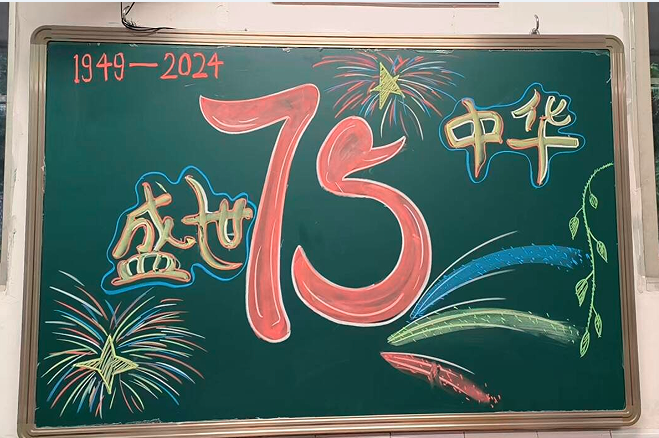 1949—2024
75
盛世
中华